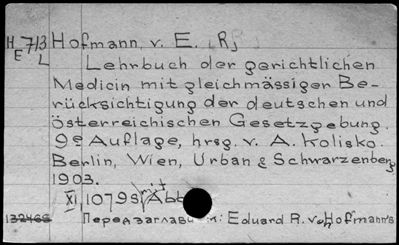 H 713 Hofmann, v. E. [R]
E L Lehrbuch der gerichtlichen
Medicin mit gleichmässiger Be-
rücksichtigung der deutschen und
österreichischen Gesetzgebung.
9e Auflage, hrsg. v. A. Kolisko.
Berlin, Wien, Urban & Schwarzenberg
1903.
XI, 1079s mit Abb
132468 Перед заглави м: Eduard R. v. Hofmann's